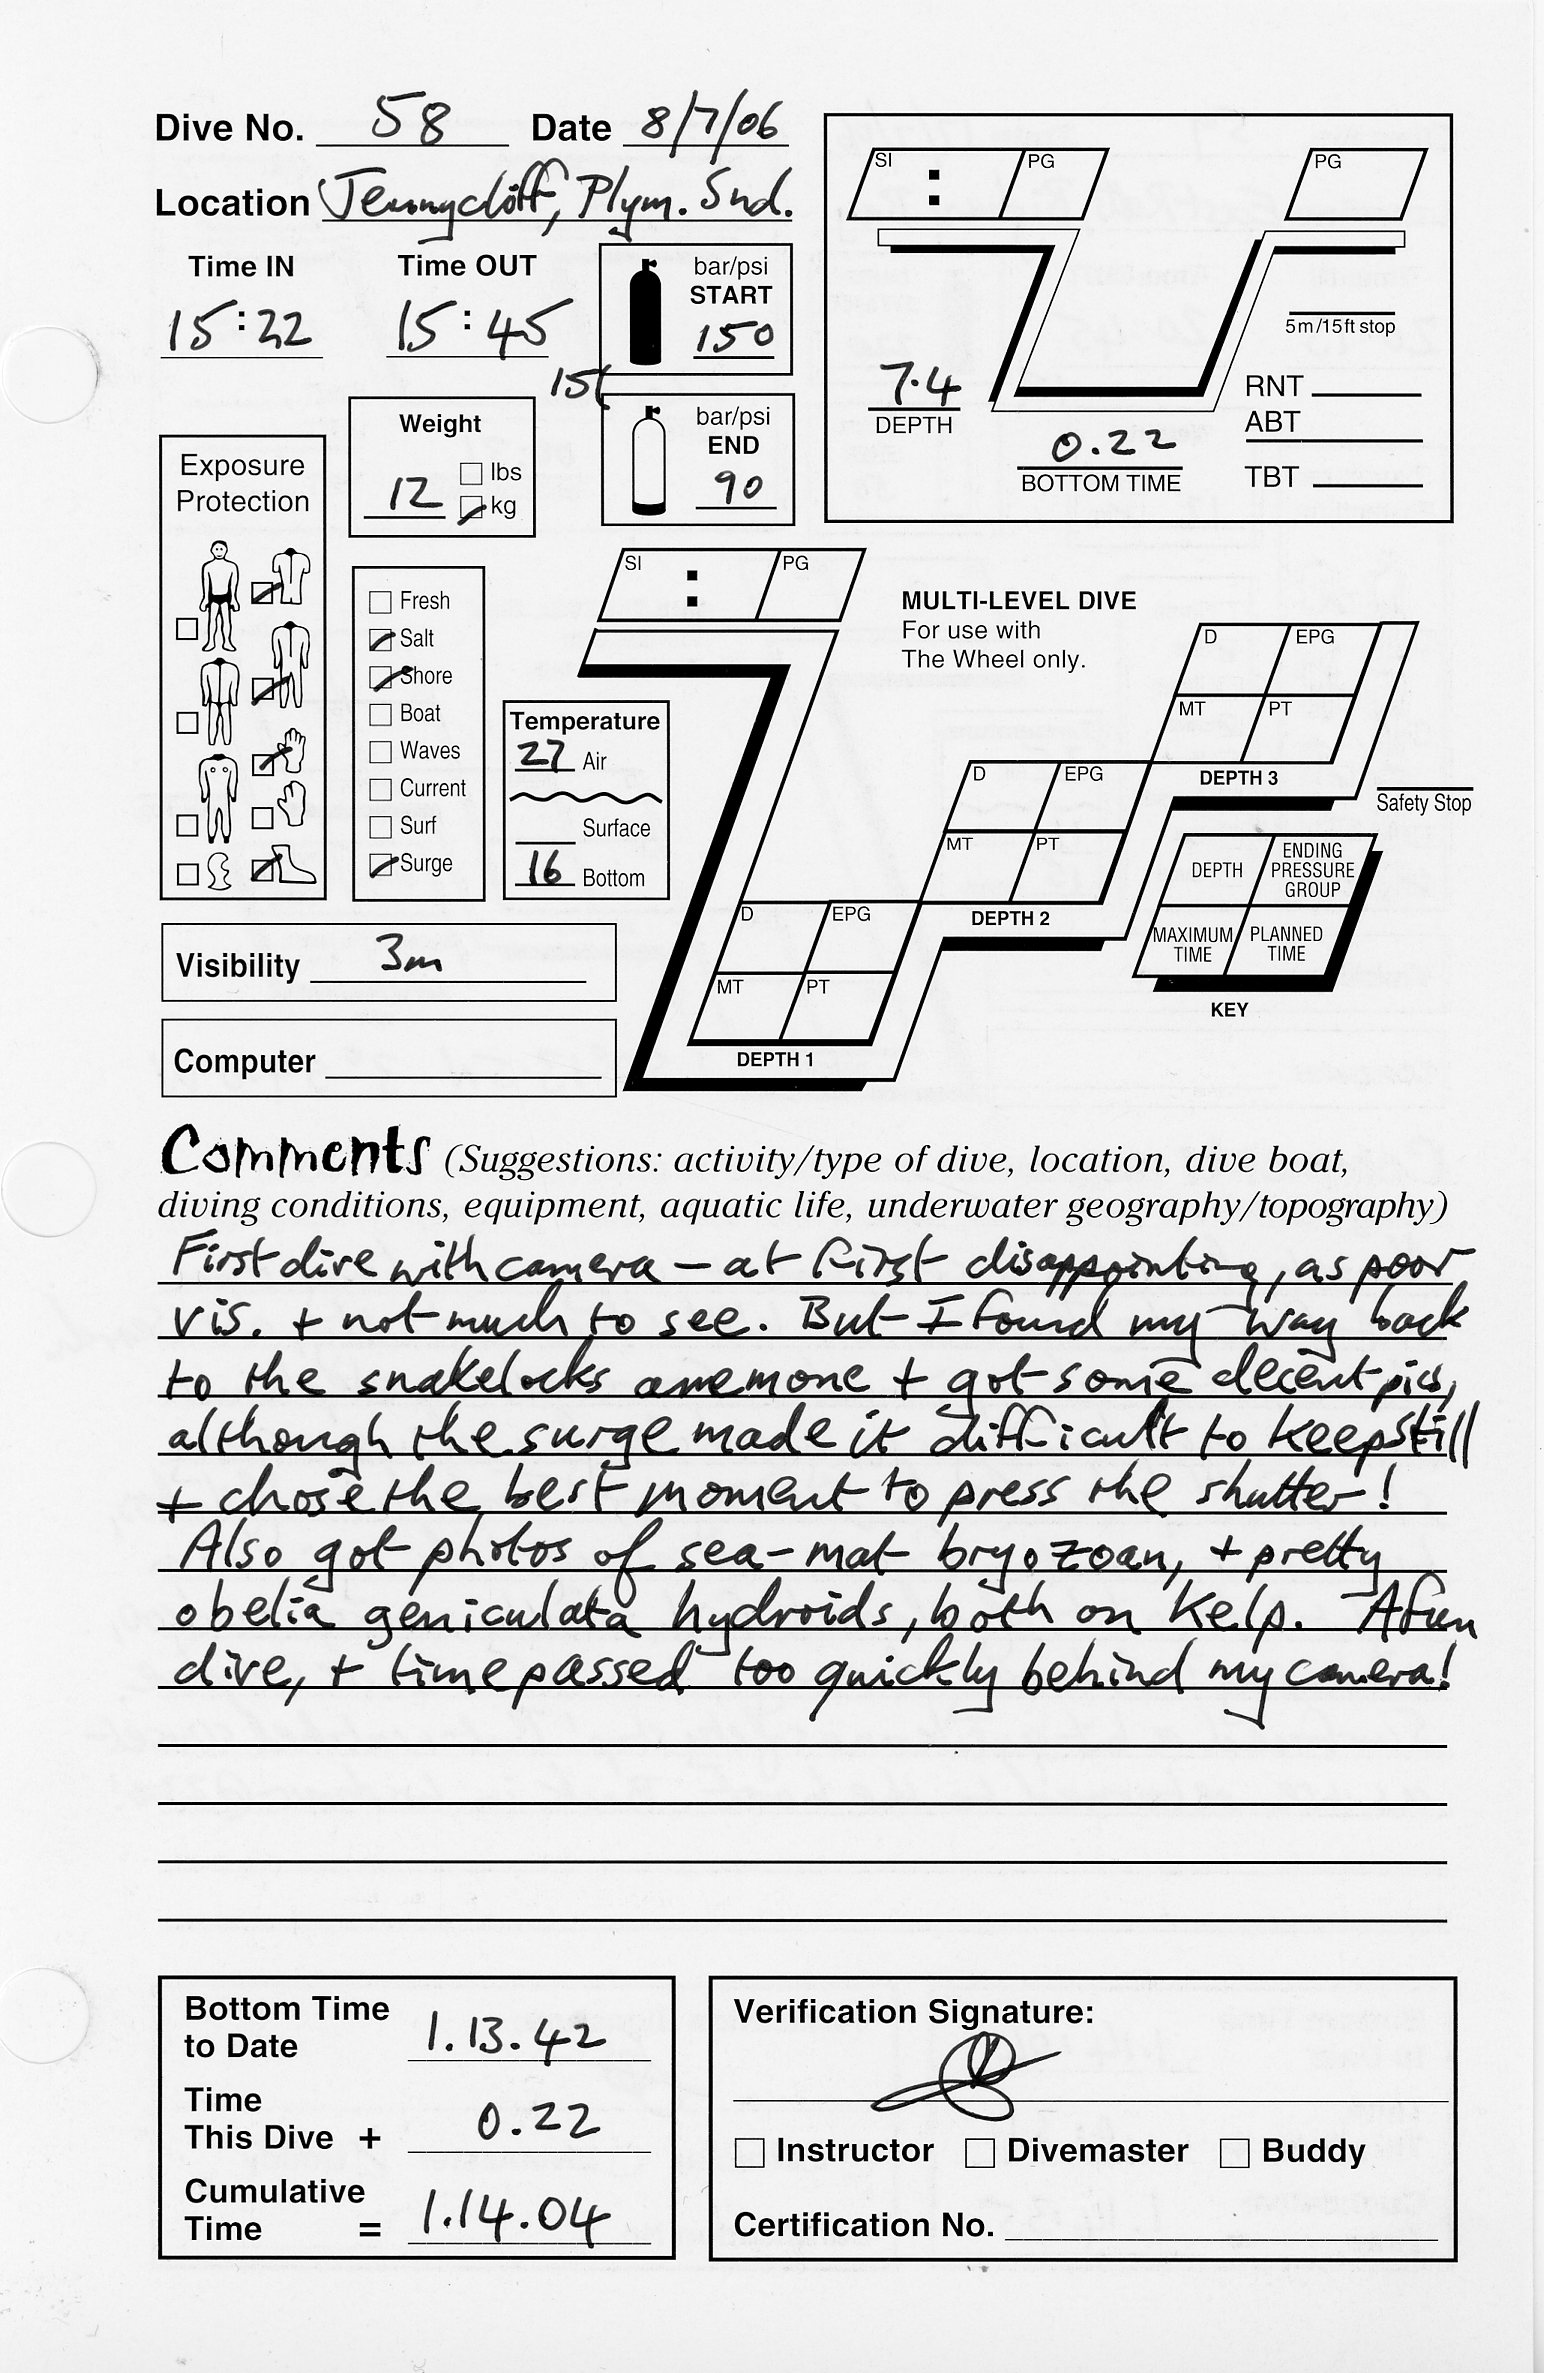 Dive No. 58 Date 8/7/06
Location Jennycliff, Plym. Snd.
Time IN Time OUT
15:22 15:45
bar/psi
START
150
15l
bar/psi
END
90
Weight
12 lbs
kg
Exposure
Protection
Fresh
Salt
Shore
Boat
Waves
Current
Surf
Surge
Temperature
27 Air
Surface
16 Bottom
Visibility 3m
Computer
SI : PG
PG
5m/15ft stop
7.4
DEPTH
0.22
BOTTOM TIME
RNT
ABT
TBT
SI : PG
MULTI-LEVEL DIVE
For use with
The Wheel only.
D EPG
MT PT
DEPTH 1
D EPG
MT PT
DEPTH 2
D EPG
MT PT
DEPTH 3
Safety Stop
DEPTH
ENDING
PRESSURE
GROUP
MAXIMUM
TIME
PLANNED
TIME
KEY
Comments (Suggestions: activity/type of dive, location, dive boat,
diving conditions, equipment, aquatic life, underwater geography/topography)
First dive with camera – at first disappointing, as poor
vis. + not much to see. But I found my way back
to the snakelocks anemone + got some decent pics,
although the surge made it difficult to keep still
+ chose the best moment to press the shutter!
Also got photos of sea-mat bryozoan, + pretty
obelia geniculata hydroids, both on kelp. A fun
dive, + time passed too quickly behind my camera!
Bottom Time
to Date 1.13.42
Time
This Dive + 0.22
Cumulative
Time = 1.14.04
Verification Signature:
Instructor Divemaster Buddy
Certification No.